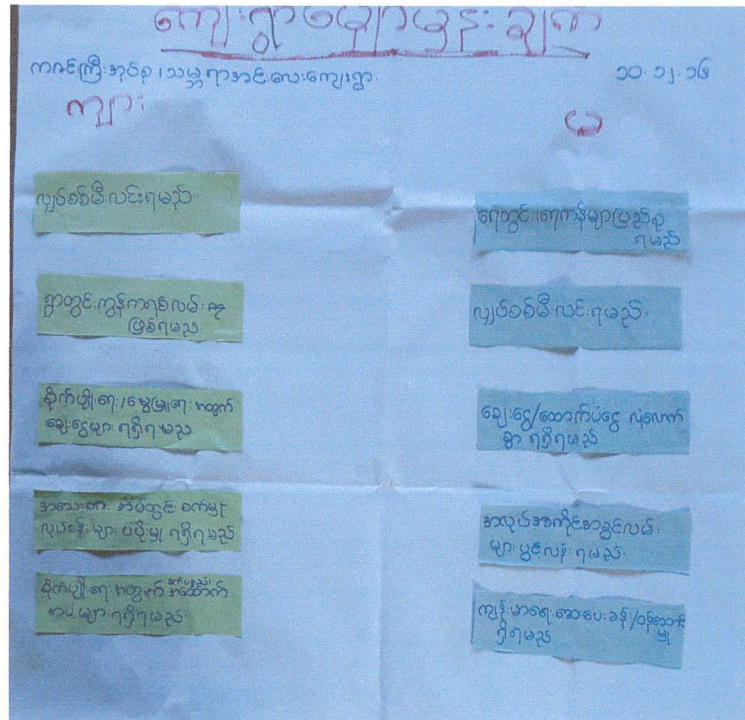 ကျေးရွာမျှော်မှန်းချက်
ကဇင်ကြီးအုပ်စု၊ သမ္ဘရာအင်းလေးကျေးရွာ
၁၀.၁၂.၁၆
ကျား
မ
လျှပ်စစ်မီးလင်းရမည်
ရွာတွင်းကွန်ကရစ်လမ်း
ဖြစ်ရမည်
စိုက်ပျိုးရေး/မွေးမြူရေးအတွက်
ချေးငွေများရရှိရမည်
အသေးစား အိမ်တွင်းစက်မှု
လုပ်ငန်းများ ပံ့ပိုးမှု ရရှိရမည်
စိုက်ပျိုးရေးအတွက် အထောက်
အပံ့များရရှိရမည်
ရေတွင်း၊ရေကန်များပြည့်စုံ
ရမည်
လျှပ်စစ်မီးလင်းရမည်
ချေးငွေ/ထောက်ပံ့ငွေ လုံလောက်
စွာ ရရှိရမည်
အလုပ်အကိုင်အခွင့်လမ်း
များပွင့်လန်းရမည်
ကျန်းမာရေးဆေးပေးခန်း/ဝန်ဆောင်
မှု
ရှိရမည်